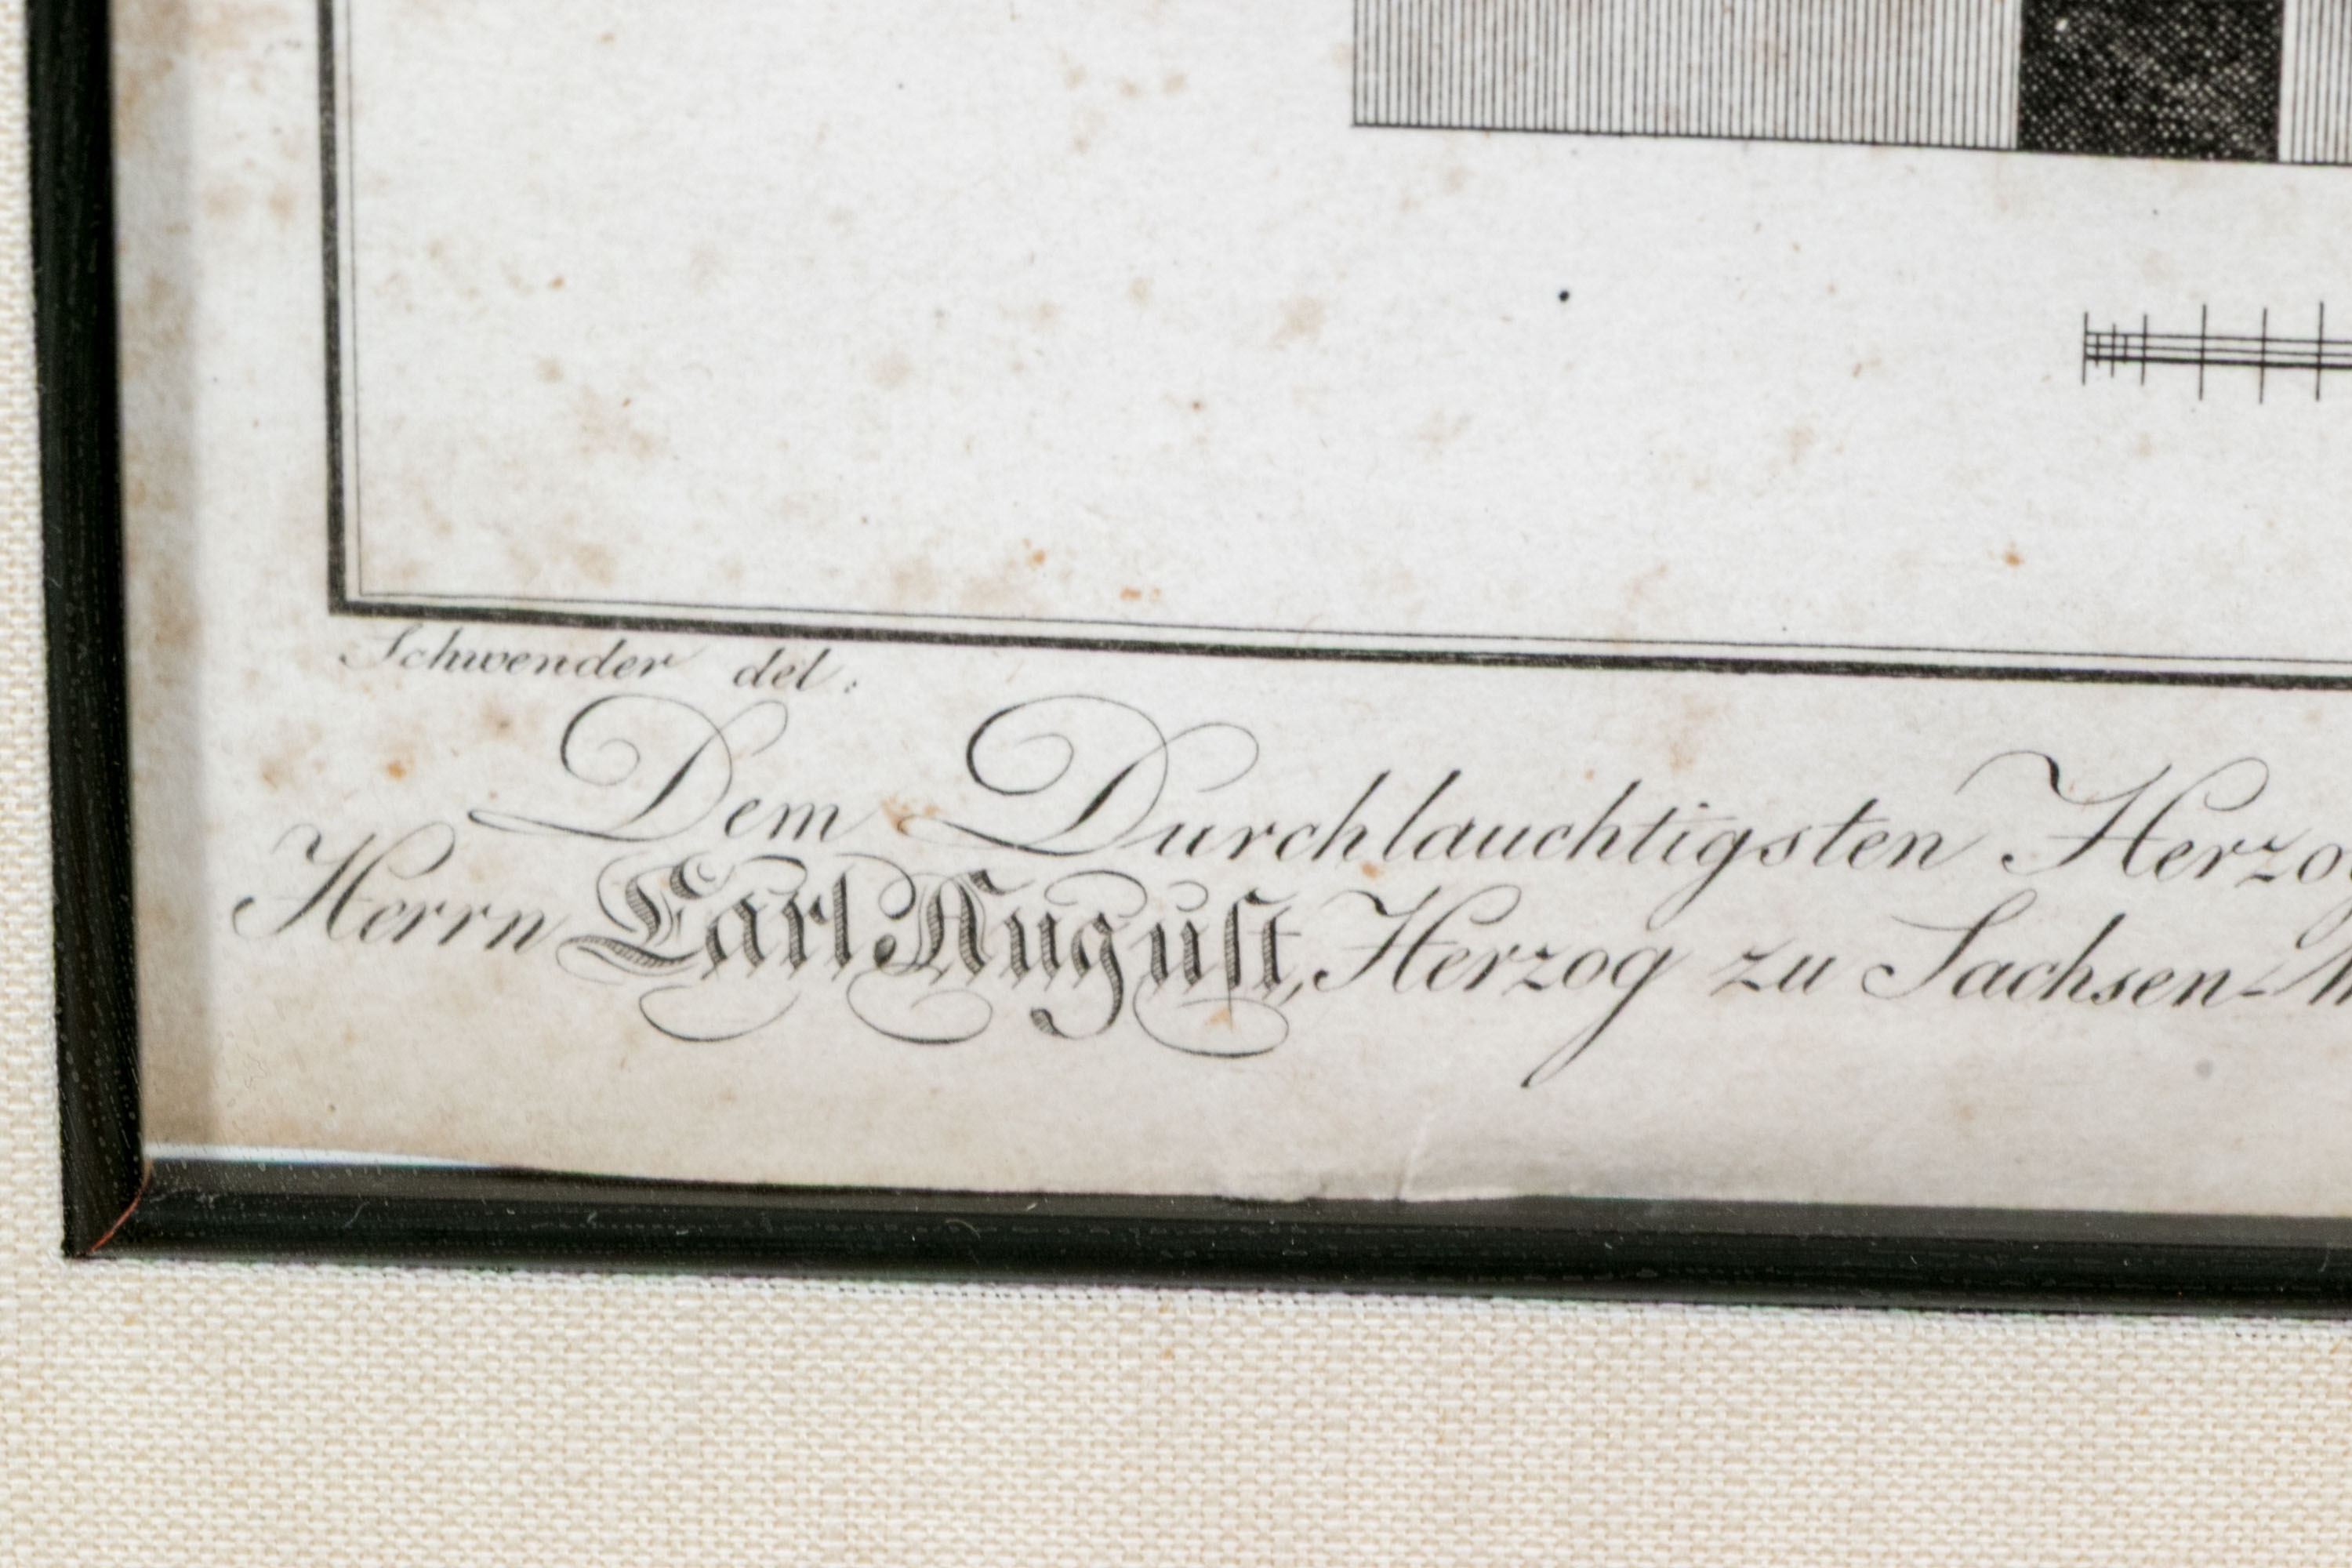 Schwender del:
Dem Durchlauchtigsten Herzog
Herrn Carl August, Herzog zu Sachsen-